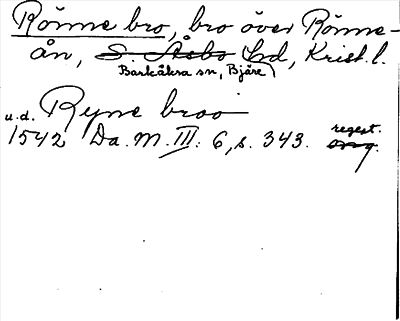 Rönne bro, bro över Rönne-
ån, S. Åsbo hd, Krist. l.
Barkåkra sn, Bjäre
u.d. Ryne broo
regest.
1542 Da. M. III: 6, s. 343. orig.